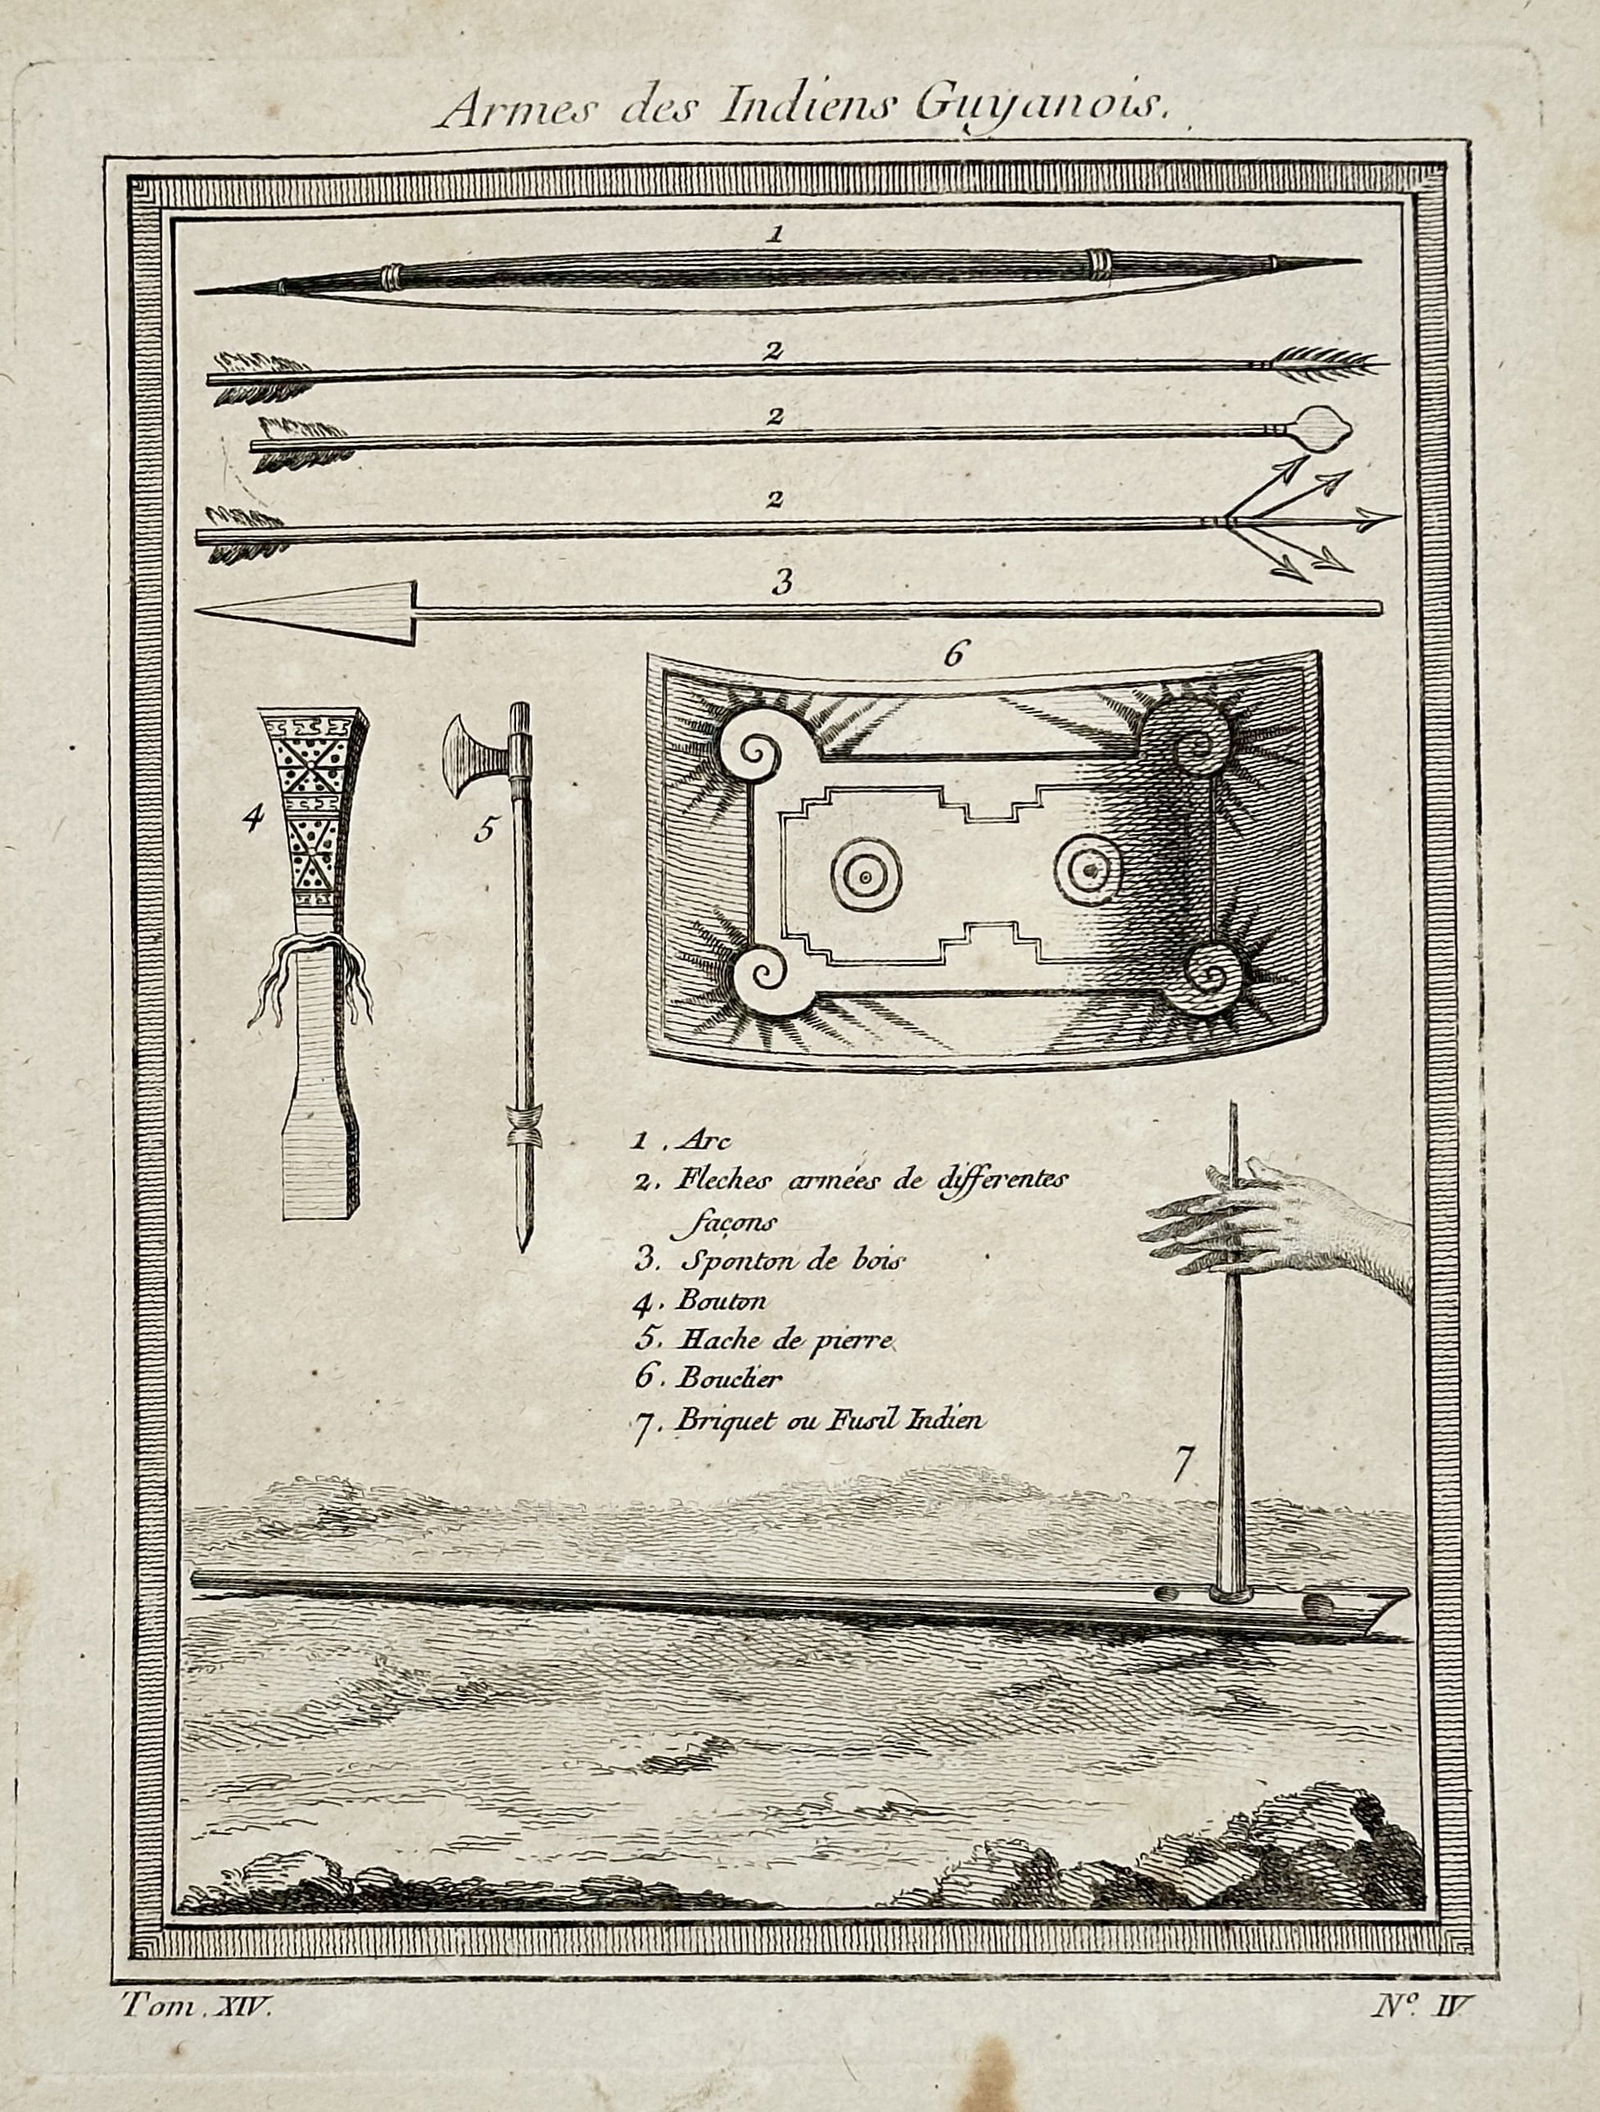 Armes des Indiens Guyanois.
1
2
2
2
3
6
4
5
1. Arc
2. Fleches armées de differentes
façons
3. Sponton de bois
4. Bouton
5. Hache de pierre
6. Bouclier
7. Briquet ou Fusil Indien
7
Tom. XIV.
Nº. IV